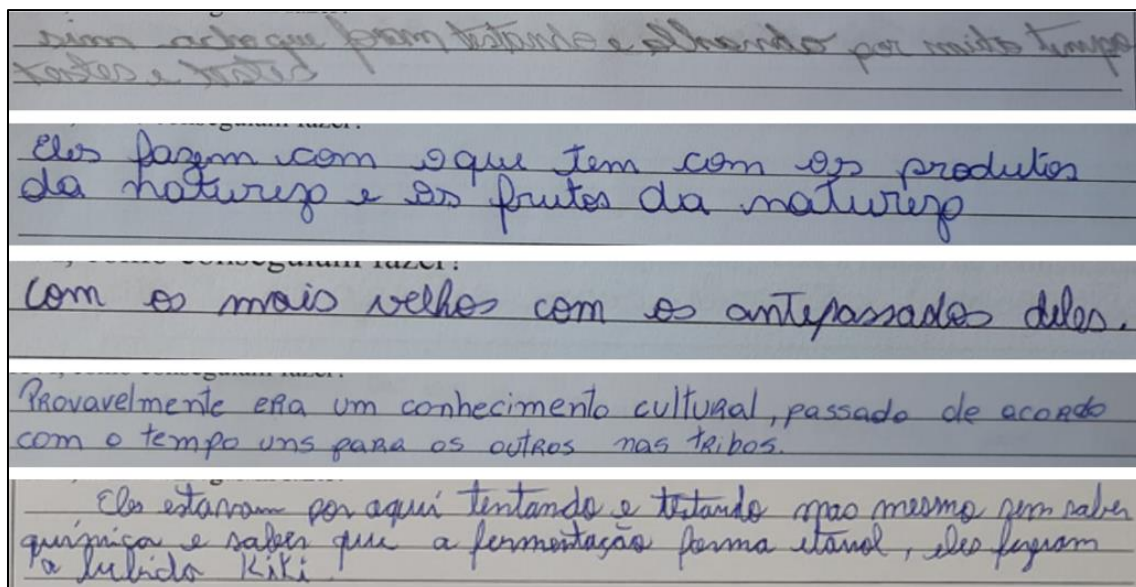 sim acho que foram testando e olhando por muito tempo
testes e testes
Eles fazem com oque tem com os produtos
da natureza e os frutos da natureza
conseguiam fazer?
com os mais velhos com os antepassados deles.
Provavelmente era um conhecimento cultural, passado de acordo
com o tempo uns para os outros nas tribos.
Eles estavam por aqui tentando e testando mao mesmo sem saber
química e saber que a fermentação forma etanol, eles fizeram
a bebida Kiki.